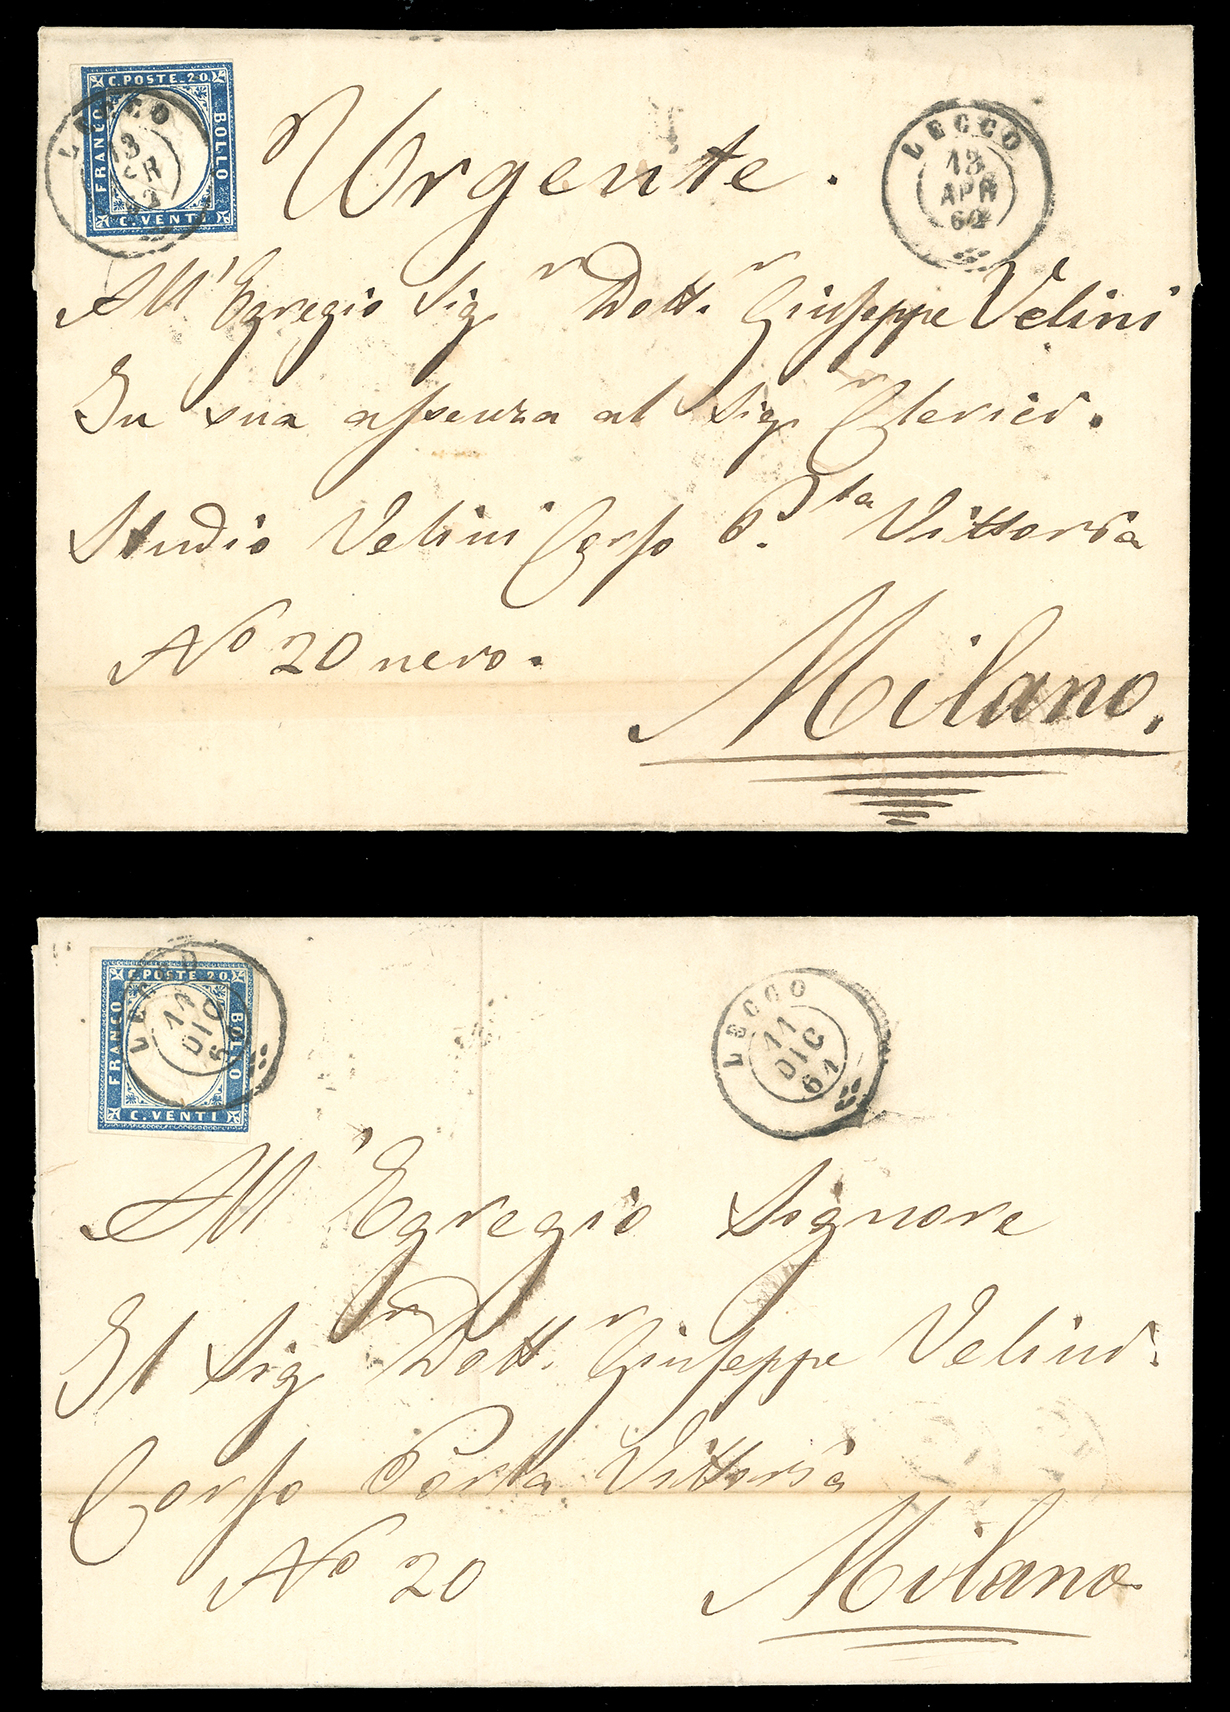 C. POSTE. 20.
FRANCO
BOLLO
C. VENTI
LECCO
13
Urgente.
LECCO
13
APR
All' Egregio Sig.r Dott.r Giuseppe Velini
In sua assenza al Sig.r Clerici.
Studio Velini Corso P.ta Vittoria
No 20 nero.
Milano.
C. POSTE. 20.
FRANCO
BOLLO
C. VENTI
LECCO
11
DIC
61
LECCO
11
DIC
61
All' Egregio Signore
Il Sig.r Dott.r Giuseppe Velini.
Corso Porta Vittoria
No 20
Milano